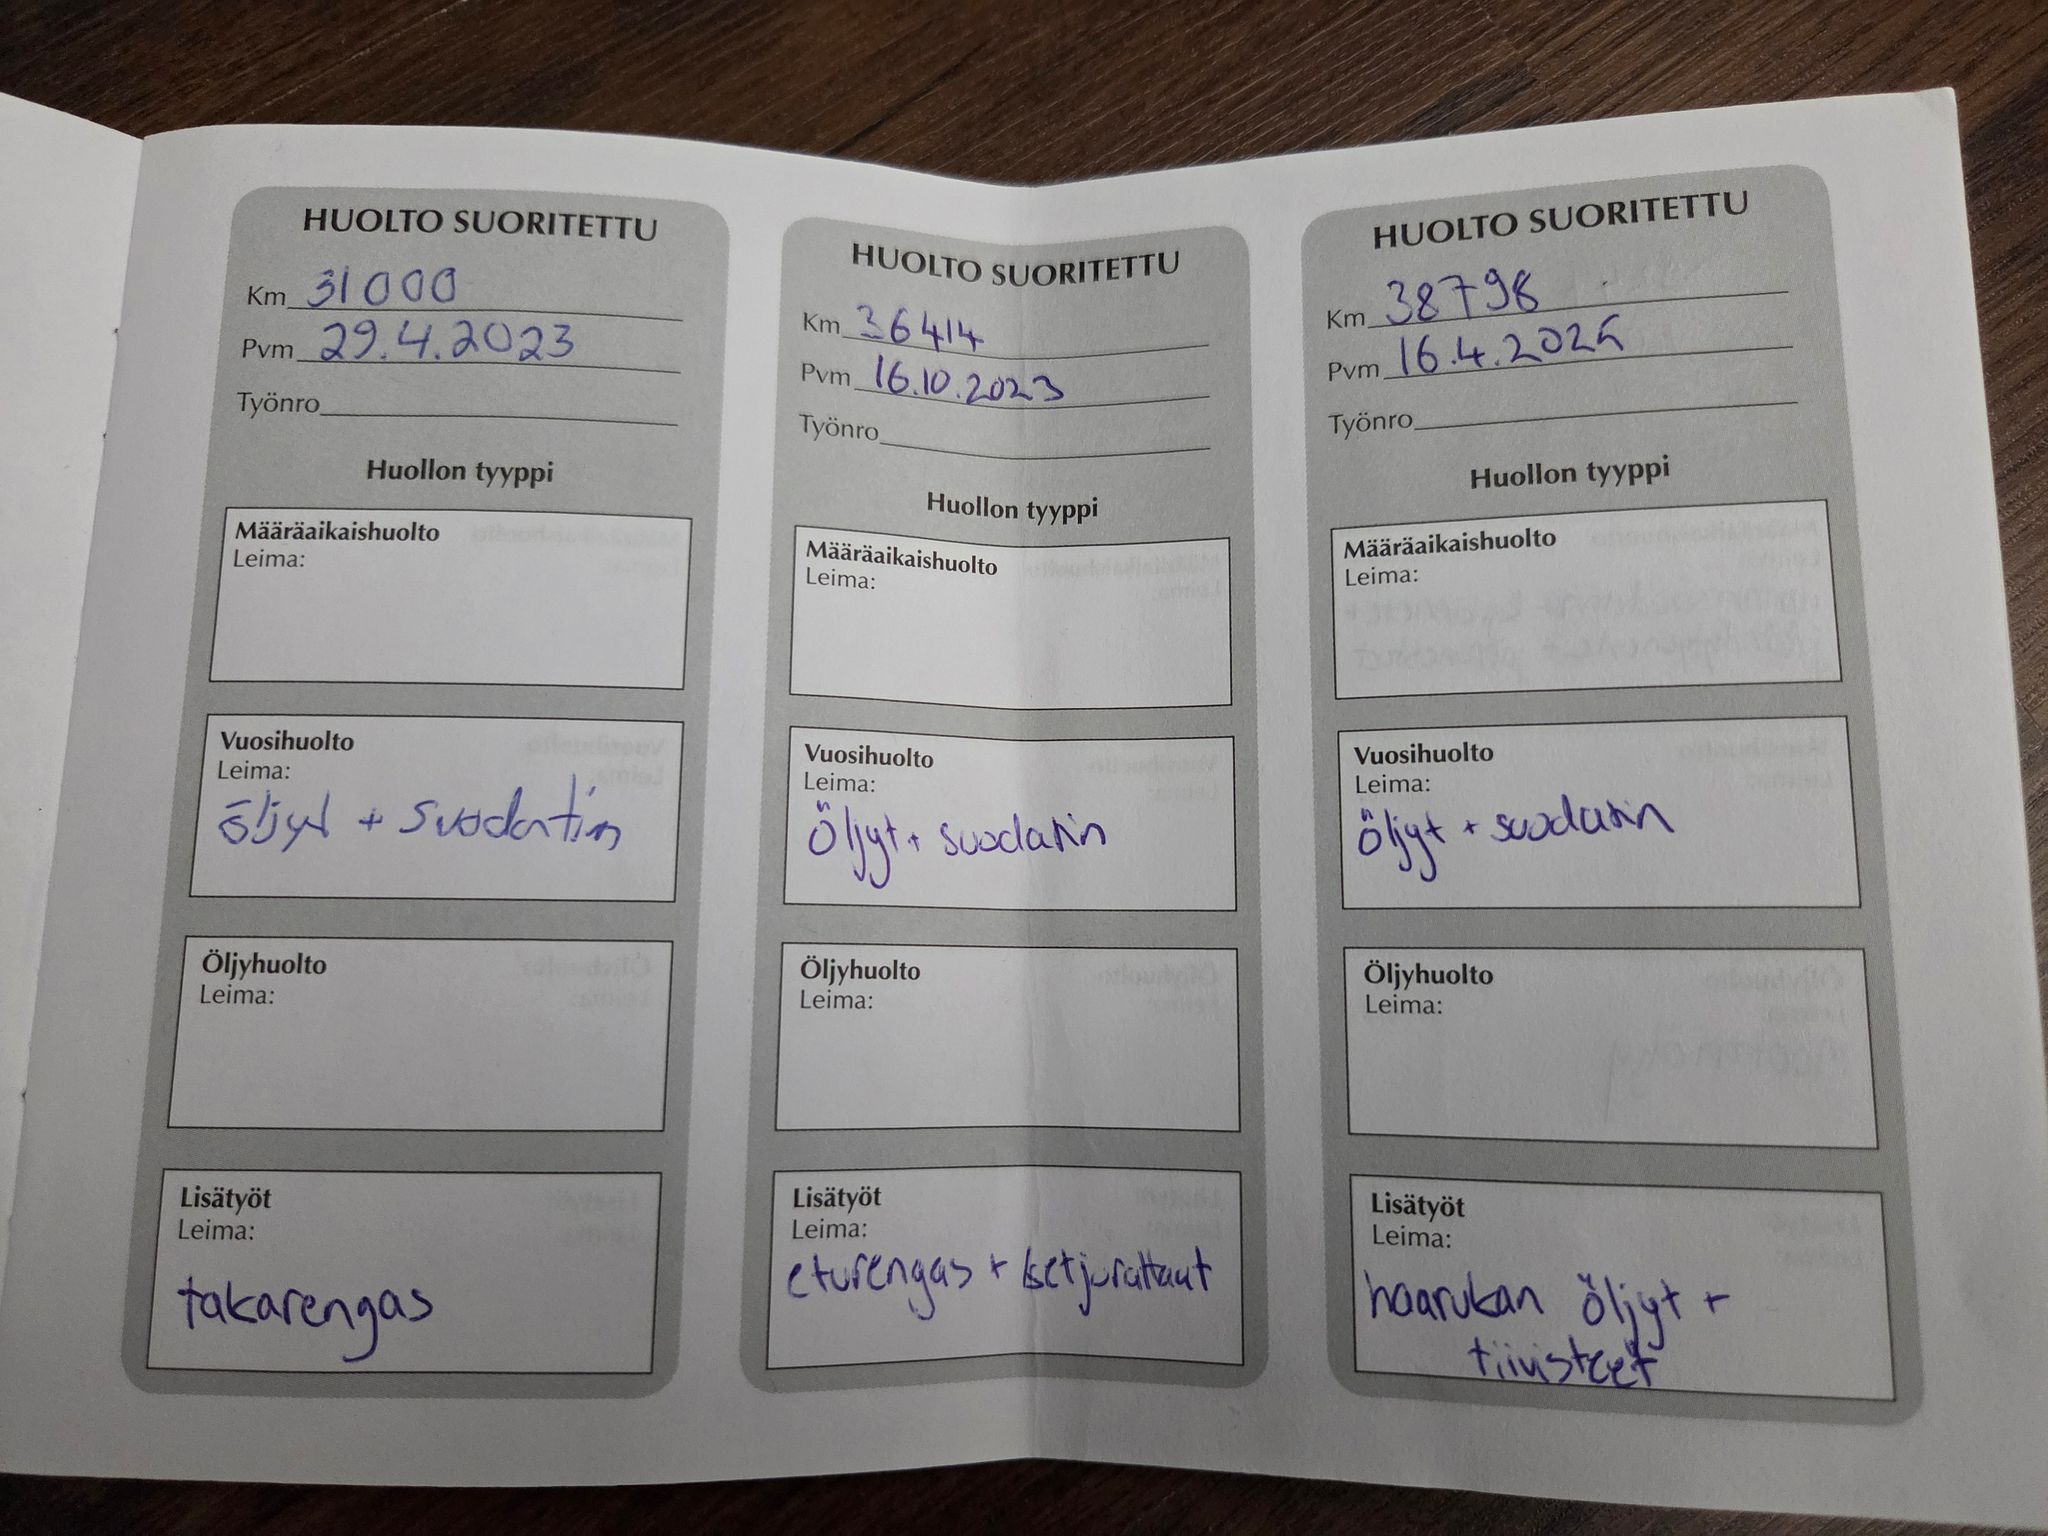 HUOLTO SUORITETTU
Km 31000
Pvm 29.4.2023
Työnro
Huollon tyyppi
Määräaikaishuolto
Leima:
Vuosihuolto
Leima:
öljyt + suodatin
Öljyhuolto
Leima:
Lisätyöt
Leima:
takarengas
HUOLTO SUORITETTU
Km 36414
Pvm 16.10.2023
Työnro
Huollon tyyppi
Määräaikaishuolto
Leima:
Vuosihuolto
Leima:
Öljyt + suodatin
Öljyhuolto
Leima:
Lisätyöt
Leima:
eturengas + ketjurattaat
HUOLTO SUORITETTU
Km 38798
Pvm
Työnro
Huollon tyyppi
Määräaikaishuolto
Leima:
Vuosihuolto
Leima:
Öljyt + suodatin
Öljyhuolto
Leima:
Lisätyöt
Leima:
haarukan öljyt +
tiivisteet